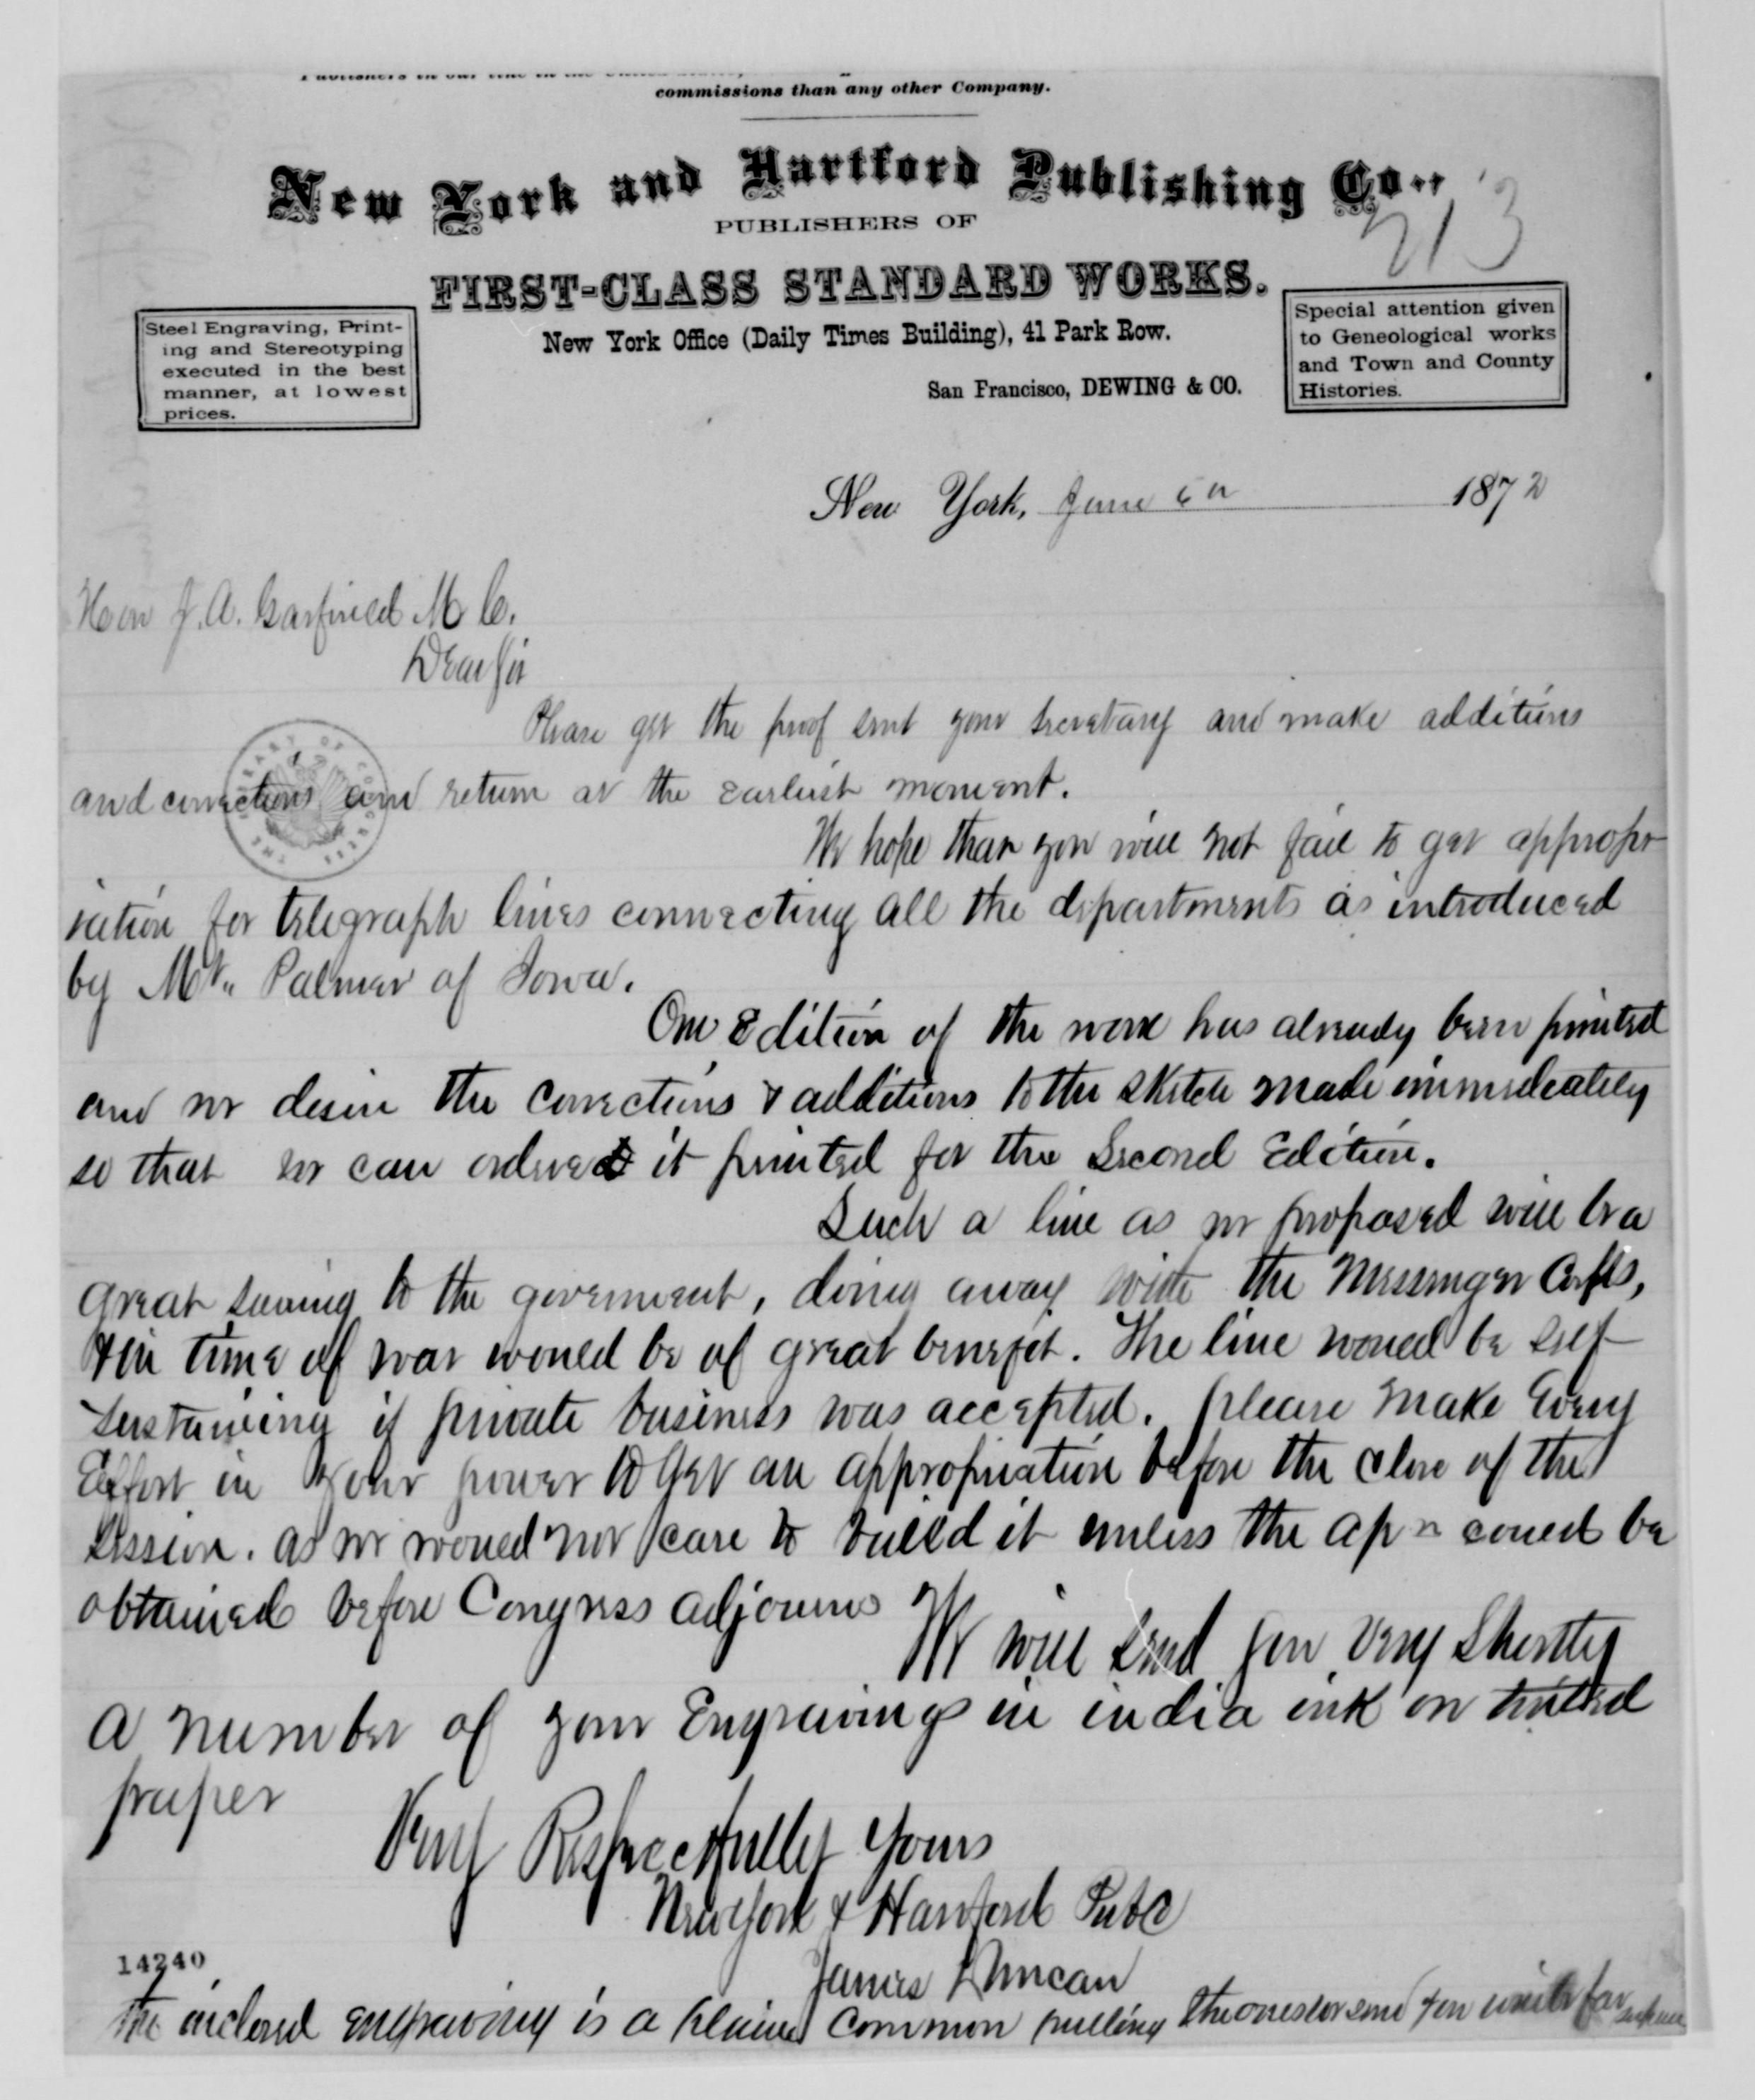 commissions than any other Company.
New York and Hartford Publishing Co.,
213
PUBLISHERS OF
FIRST-CLASS STANDARD WORKS.
Steel Engraving, Print-
ing and Stereotyping
executed in the best
manner, at lowest
prices.
New York Office (Daily Times Building), 41 Park Row.
San Francisco, DEWING & CO.
Special attention given
to Geneological works
and Town and County
Histories.
New York, June 6th 1872
Hon J. A. Garfield M C.
Dear Sir
Please get the proof sent your Secretary and make additions
and corrections and return at the earliest moment.
THE LIBRARY OF CONGRESS
We hope that you will not fail to get appropr
iation for telegraph lines connecting all the departments as introduced
by Mr. Palmer of Iowa.
One Edition of the work has already been printed
and we desire the corrections & additions to the sketch made immediately
so that we can ordered it printed for the Second Edition.
Such a line as we proposed will be a
great saving to the government, doing away with the Messenger Corps,
& in time of war would be of great benefit. The line would be self
sustaining if private business was accepted. please make Every
Effort in your power to get an appropriation before the close of the
session. as we would not care to build it unless the apn could be
obtained before Congress adjourns
We will send you very shortly
a number of your Engravings in india ink on tinted
paper
Very Respectfully Yours
New York & Hartford Pub Co
James Duncan
14240
The inclosed engraving is a plain common the ones we send you will be far